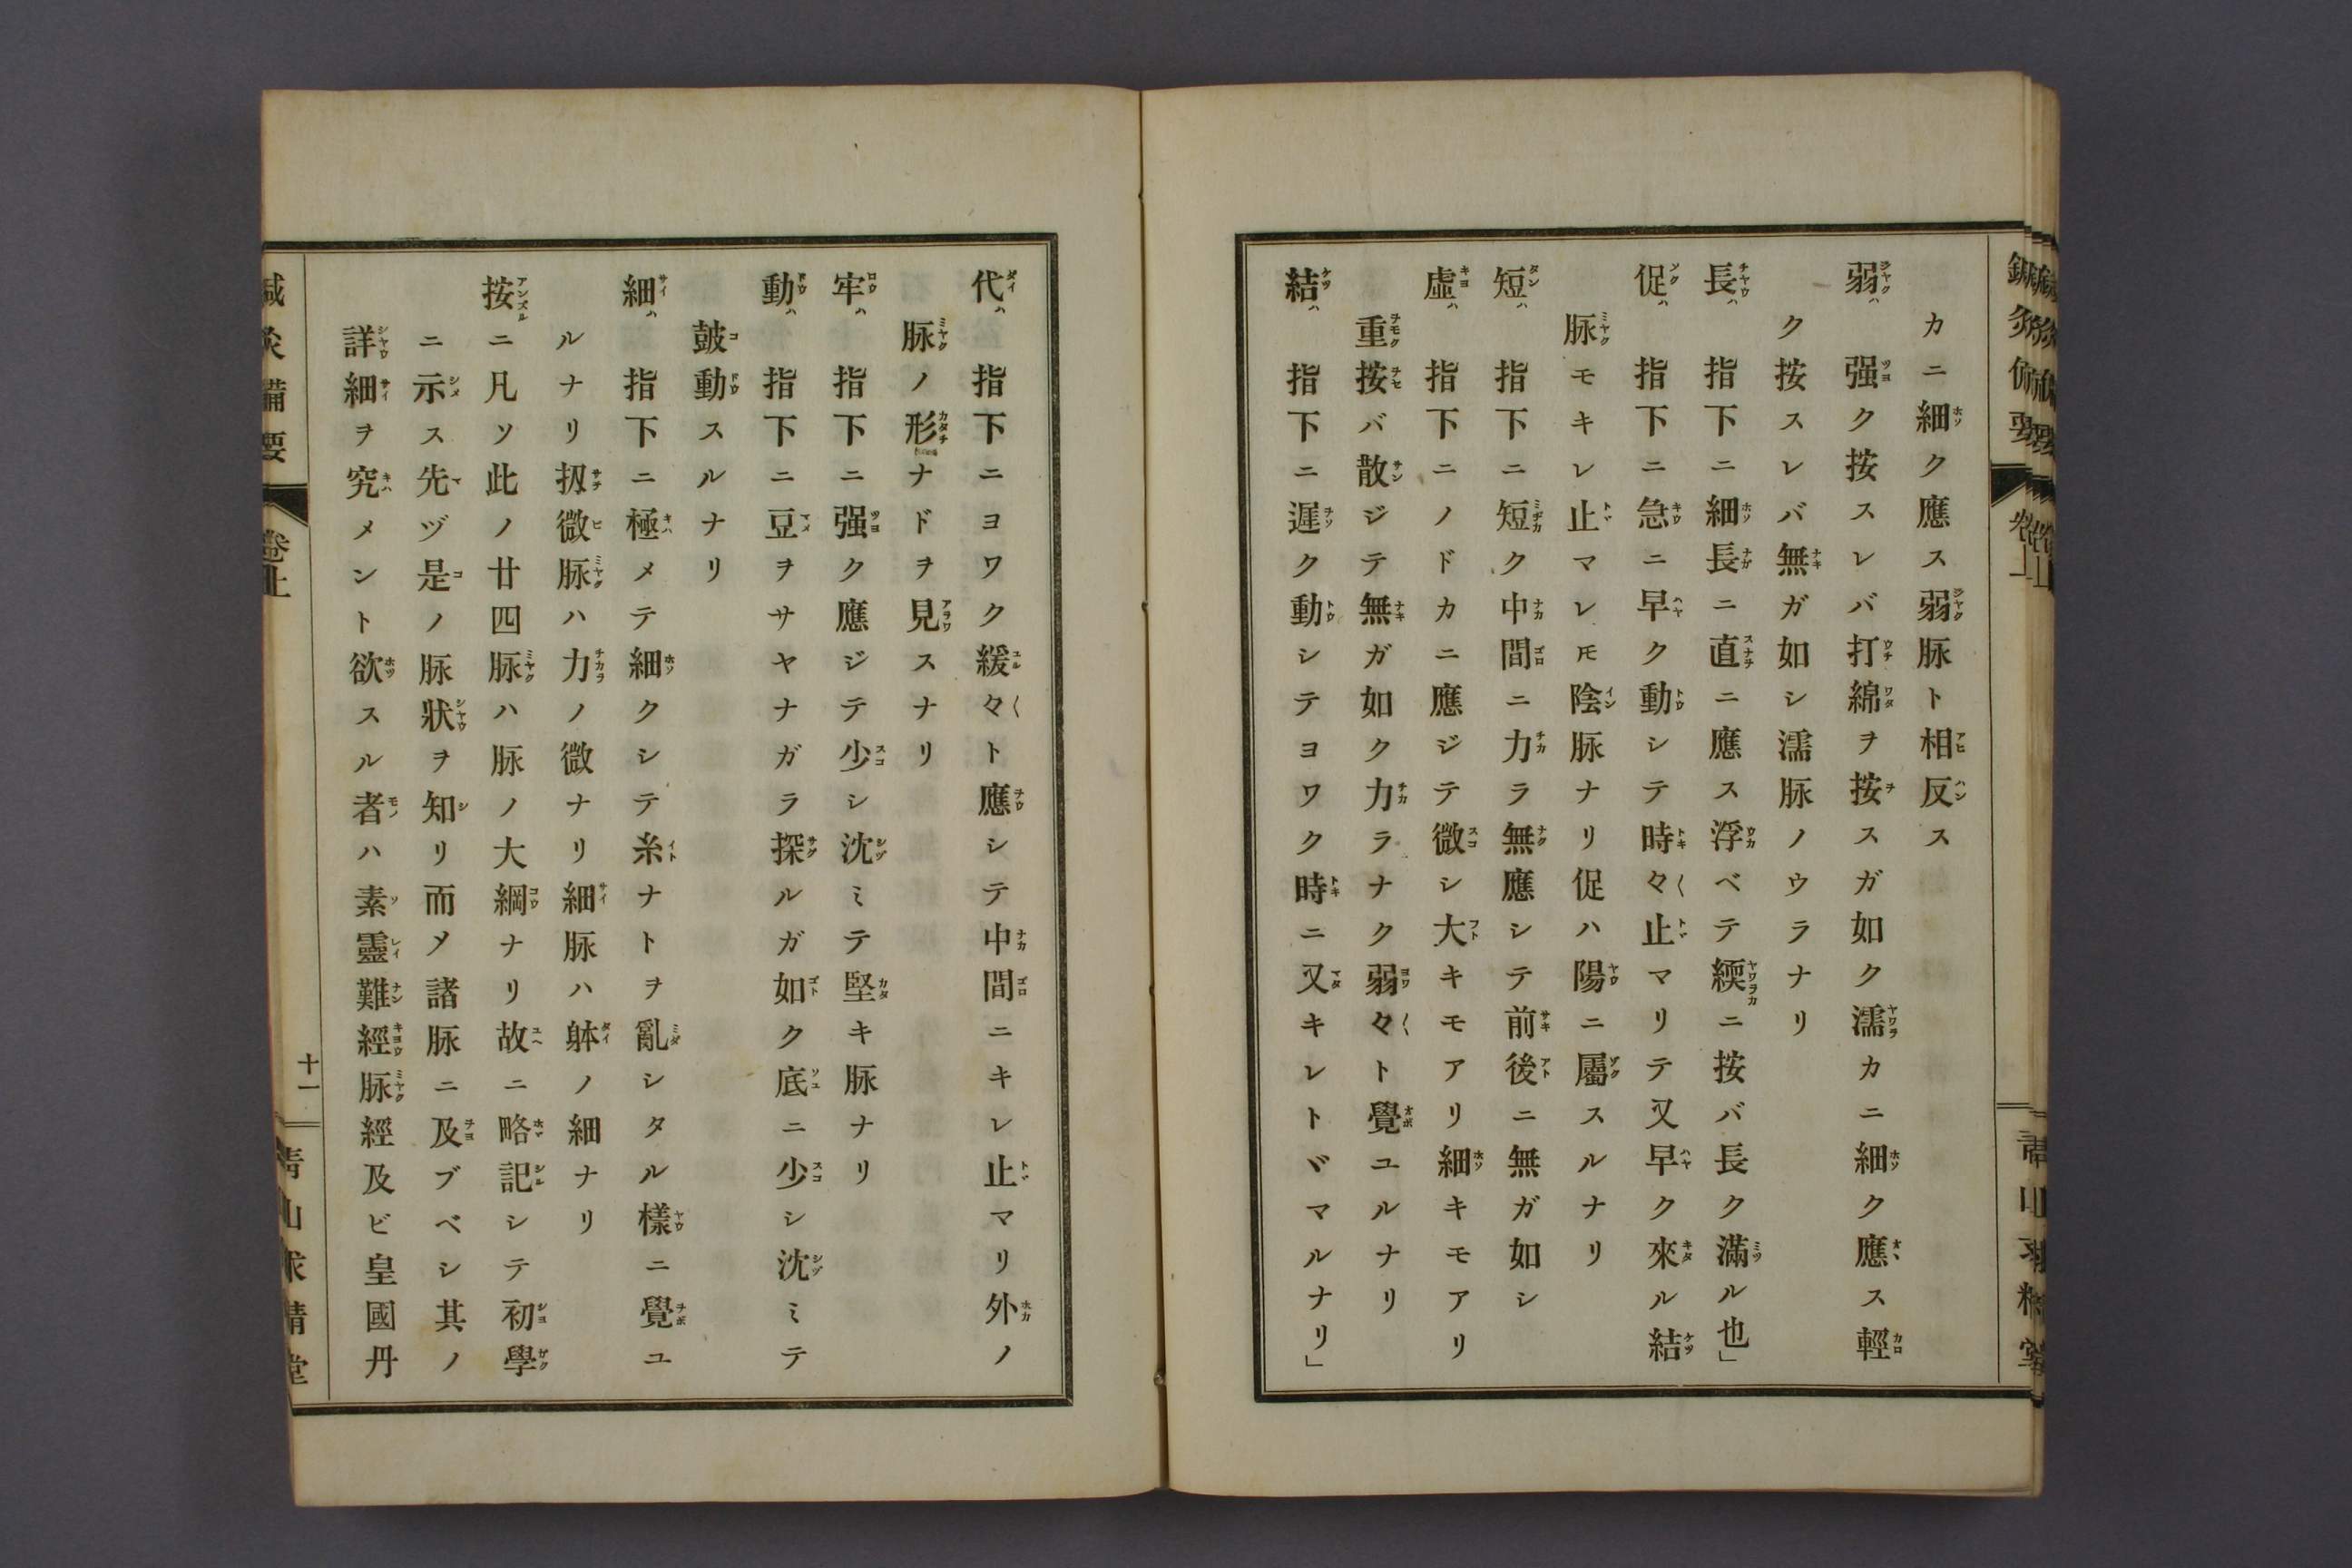 カニ細ク應ス弱脉ト相反ス
弱ハ 强ク按スレバ打綿ヲ按スガ如ク濡カニ細ク應ス輕
ク按スレバ無ガ如シ濡脉ノウラナリ
長ハ 指下ニ細長ニ直ニ應ス浮ベテ緛ニ按バ長ク滿ル也」
促ハ 指下ニ急ニ早ク動シテ時々止マリテ又早ク來ル結
脉モキレ止マレ𪜈陰脉ナリ促ハ陽ニ屬スルナリ
短ハ 指下ニ短ク中間ニ力ラ無應シテ前後ニ無ガ如シ
虛ハ 指下ニノドカニ應ジテ微シ大キモアリ細キモアリ
重按バ散ジテ無ガ如ク力ラナク弱々ト覺ユルナリ
結ハ 指下ニ遲ク動シテヨワク時ニ又キレトヾマルナリ」
代ハ 指下ニヨワク緩々ト應シテ中間ニキレ止マリ外ノ
脉ノ形ナドヲ見スナリ
牢ハ 指下ニ强ク應ジテ少シ沈ミテ堅キ脉ナリ
動ハ 指下ニ豆ヲサヤナガラ探ルガ如ク底ニ少シ沈ミテ
皷動スルナリ
細ハ 指下ニ極メテ細クシテ糸ナトヲ亂シタル樣ニ覺ユ
ルナリ扨微脉ハ力ノ微ナリ細脉ハ躰ノ細ナリ
按ニ凡ソ此ノ廿四脉ハ脉ノ大綱ナリ故ニ略記シテ初學
ニ示ス先ヅ是ノ脉狀ヲ知リ而〆諸脉ニ及ブベシ其ノ
詳細ヲ究メント欲スル者ハ素靈難經脉經及ビ皇國丹
鍼灸備要
卷上
十一